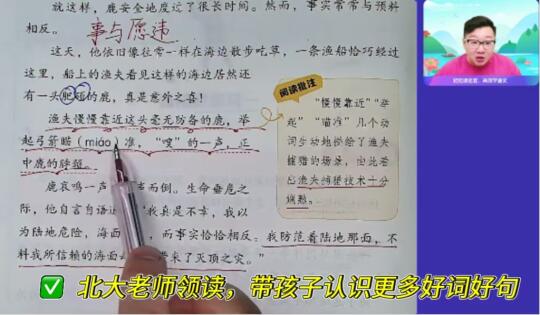 就这样，鹿安全地度过了很长时间。然而，事实常常与预料
相反。
事与愿违
这天，他依旧像往常一样在海边散步吃草，一条渔船恰巧经过
这里，船上的渔夫看见这样的海边居然还
有一头肥硕的鹿，真是意外之喜！
渔夫慢慢靠近这头毫无防备的鹿，举
起弓箭瞄（miáo）准，“嗖”的一声，正
中鹿的脖颈。
鹿哀鸣一声
而倒。生命垂危之
际，他自言自语
我真是不幸，我以
为陆地危险，海面
而事实恰恰相反。我防范着陆地那面，不
料我所信赖的海面
带来了灭顶之灾。”
阅读批注
“慢慢靠近”“举
起”“瞄准”几个动
词生动地描绘了渔夫
捕猎的场景，由此看
出渔夫捕猎技术十分
娴熟。
北大老师领读，带孩子认识更多好词好句